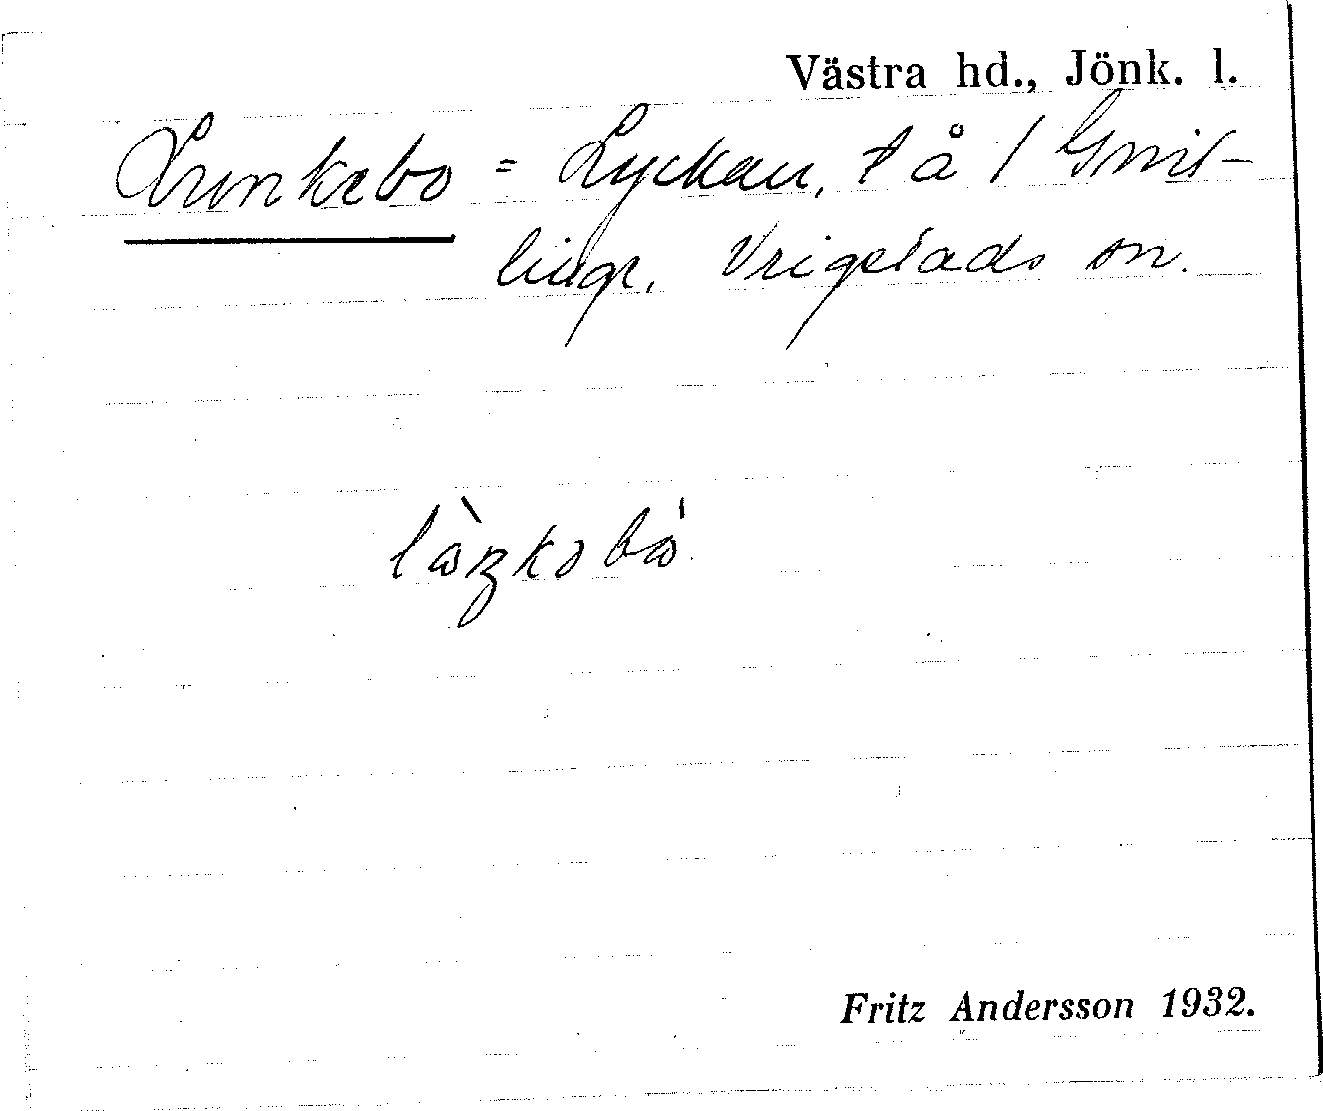 Västra hd., Jönk. l.
Lunkebo = Lyckan, t å 1 Gnit-
lingr, Vrigstads sn.
Fritz Andersson 1932.